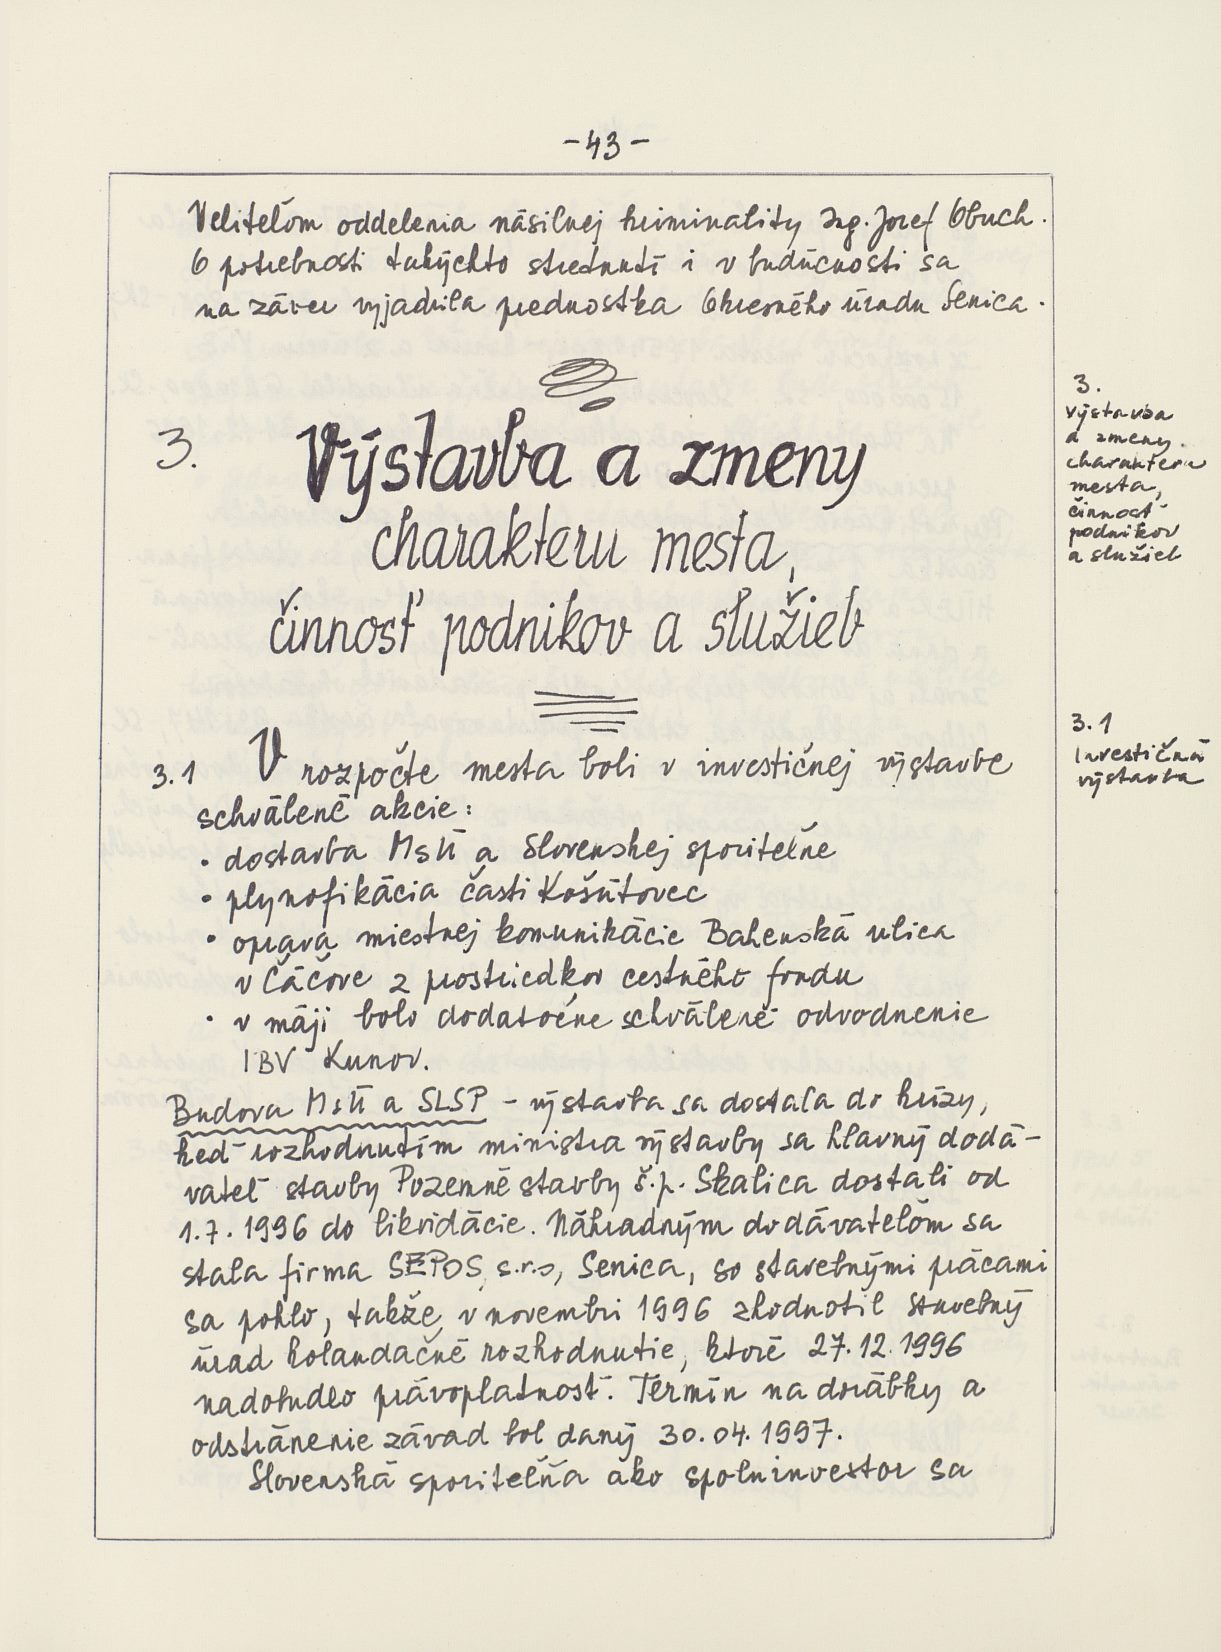 -43-
Veliteľom oddelenia násilnej kriminality Ing. Jozef Obuch.
O potrebnosti takýchto stretnutí i v budúcnosti sa
na záver vyjadrila prednostka Okresného úradu Senica.
3. Výstavba a zmeny
charakteru mesta,
činnosť podnikov a služieb
3.
výstavba
a zmeny
charakteru
mesta,
činnosť
podnikov
a služieb
3.1 V rozpočte mesta boli v investičnej výstavbe
schválené akcie:
• dostavba MsÚ a Slovenskej sporiteľne
• plynofikácia časti Košútovec
• oprava miestnej komunikácie Bahenská ulica
v Čáčove z prostriedkov cestného fondu
• v máji bolo dodatočne schválené odvodnenie
IBV Kunov.
3.1
Investičná
výstavba
Budova MsÚ a SLSP - výstavba sa dostala do krízy,
keď rozhodnutím ministra výstavby sa hlavný dodá-
vateľ stavby Pozemné stavby š.p. Skalica dostali od
1.7.1996 do likvidácie. Náhradným dodávateľom sa
stala firma SEPOS, s.r.o, Senica, so stavebnými prácami
sa pohlo, takže v novembri 1996 zhodnotil stavebný
úrad kolaudačné rozhodnutie, ktoré 27.12.1996
nadobudlo právoplatnosť. Termín na dorábky a
odstránenie závad bol daný 30.04.1997.
Slovenská sporiteľňa ako spoluinvestor sa